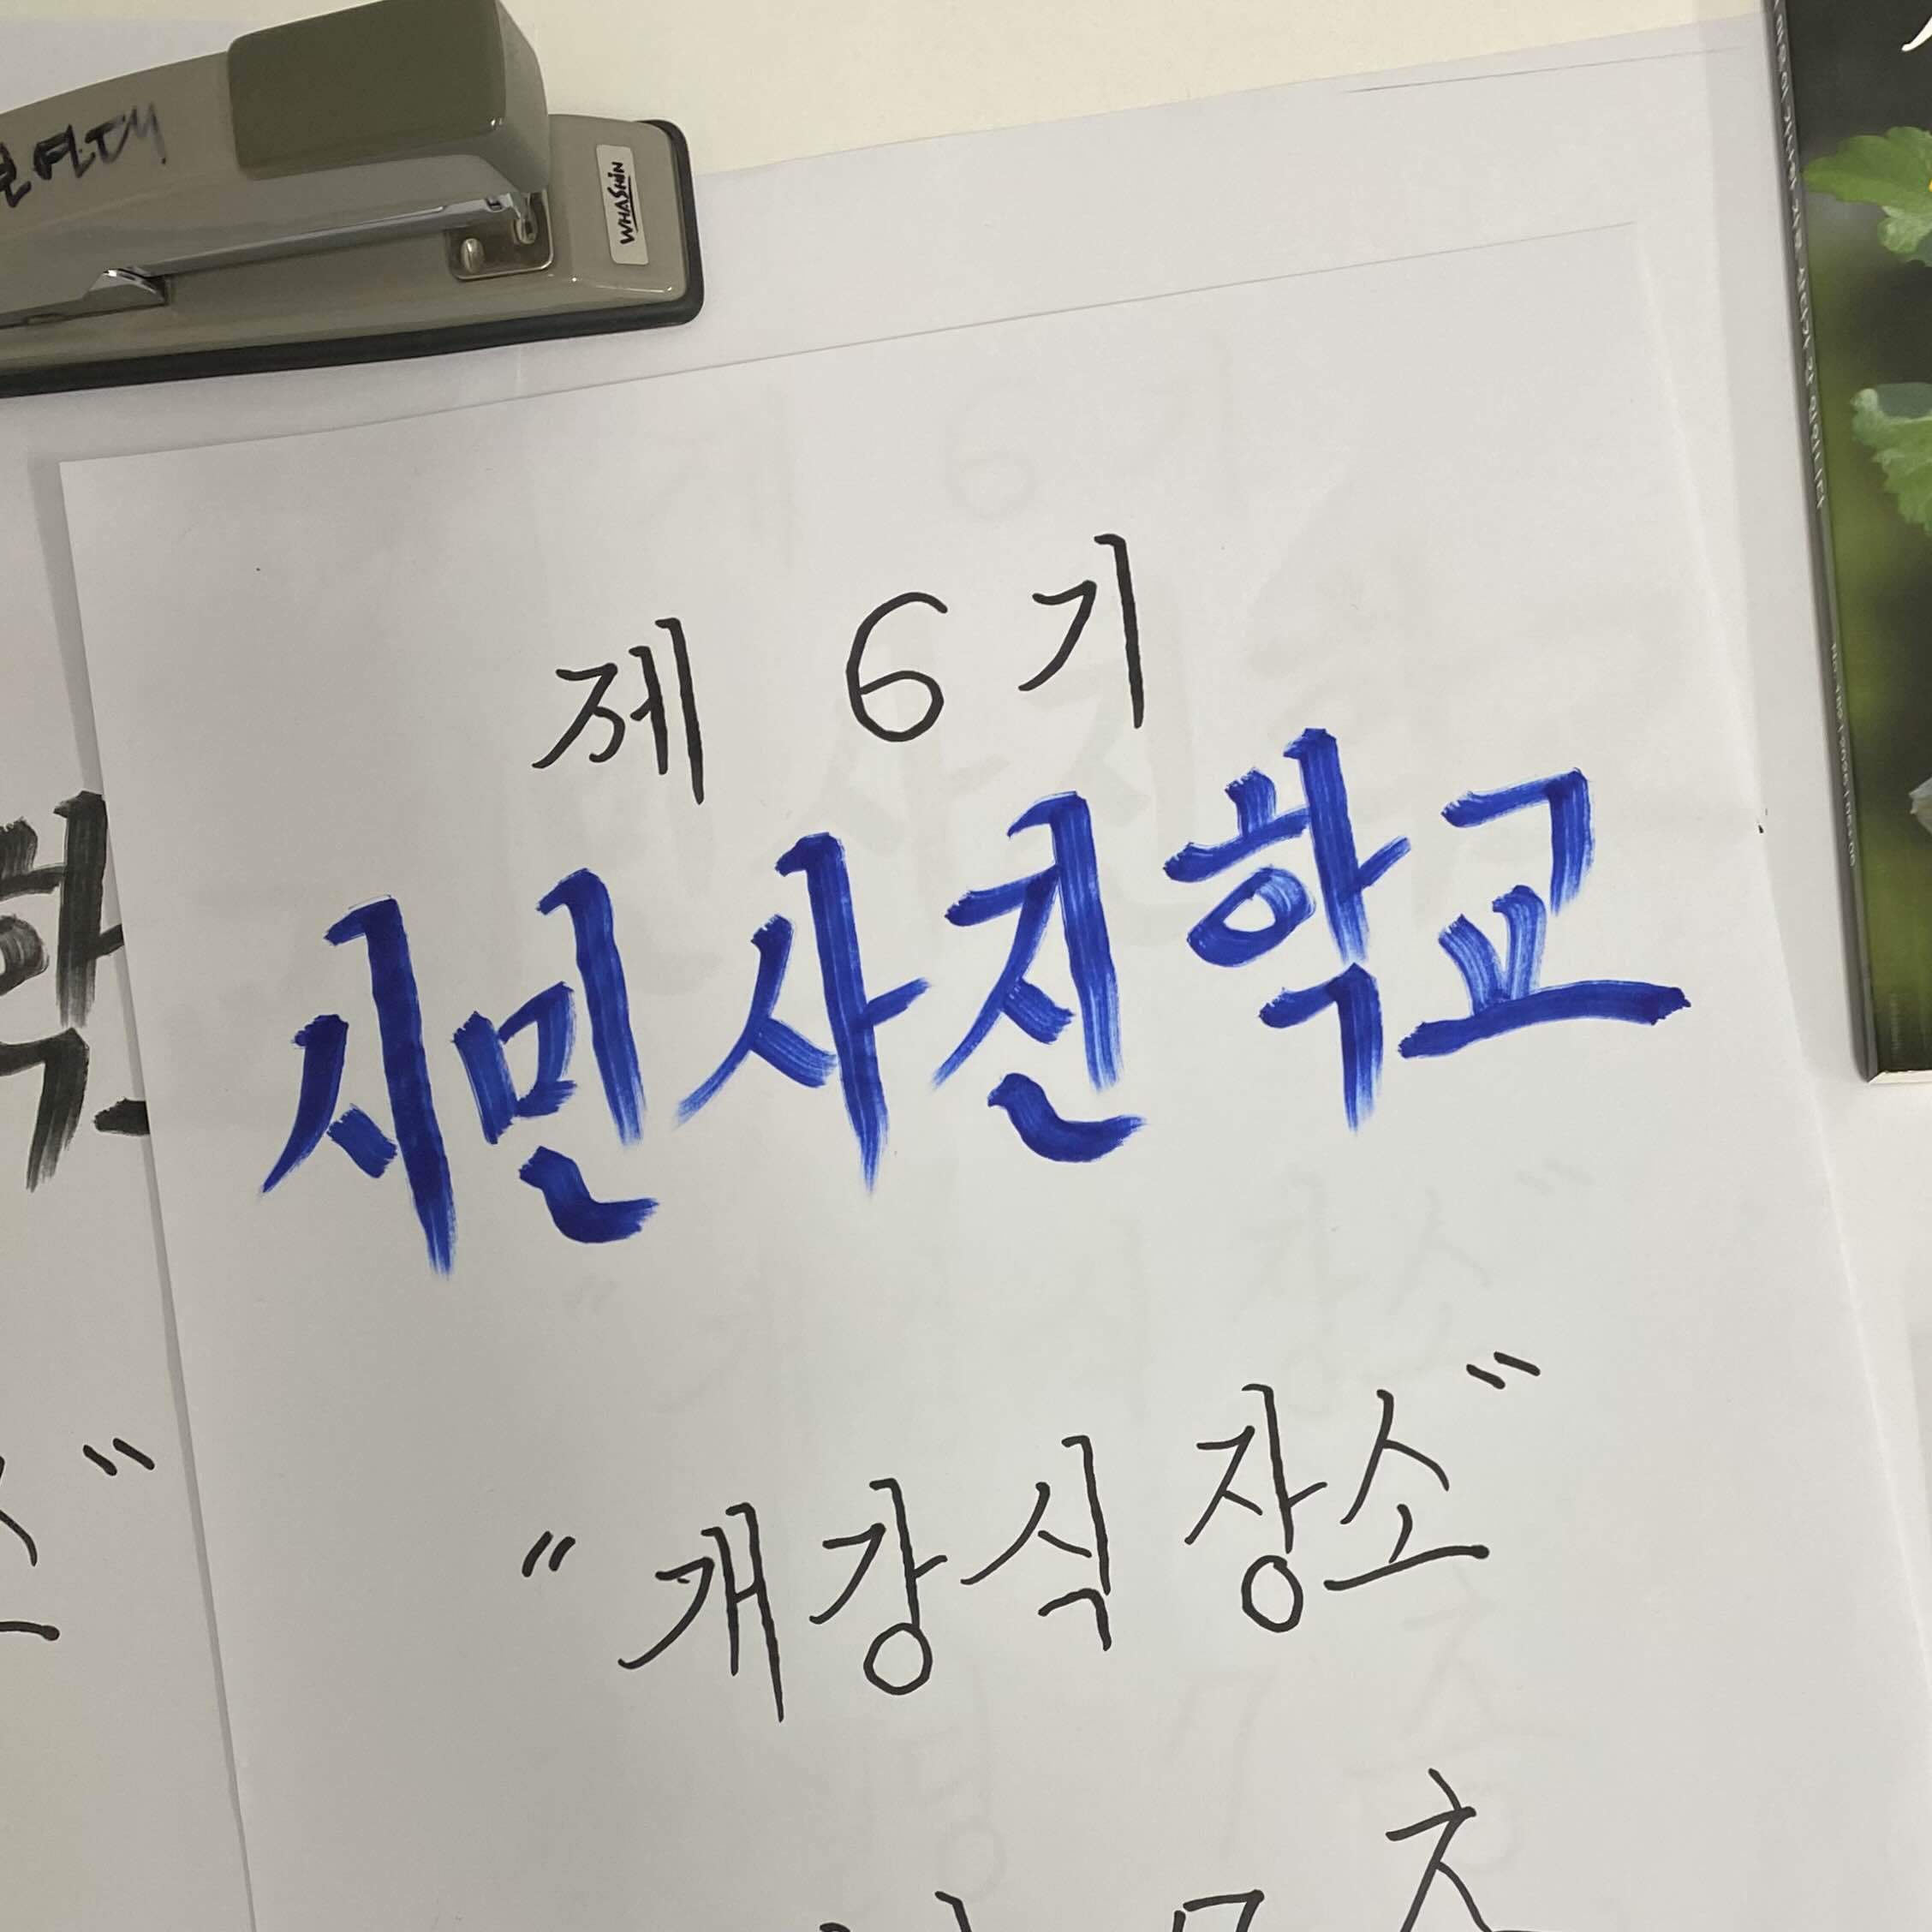 WHASHIN
제 6기
시민사진학교
"개강식 장소"
7